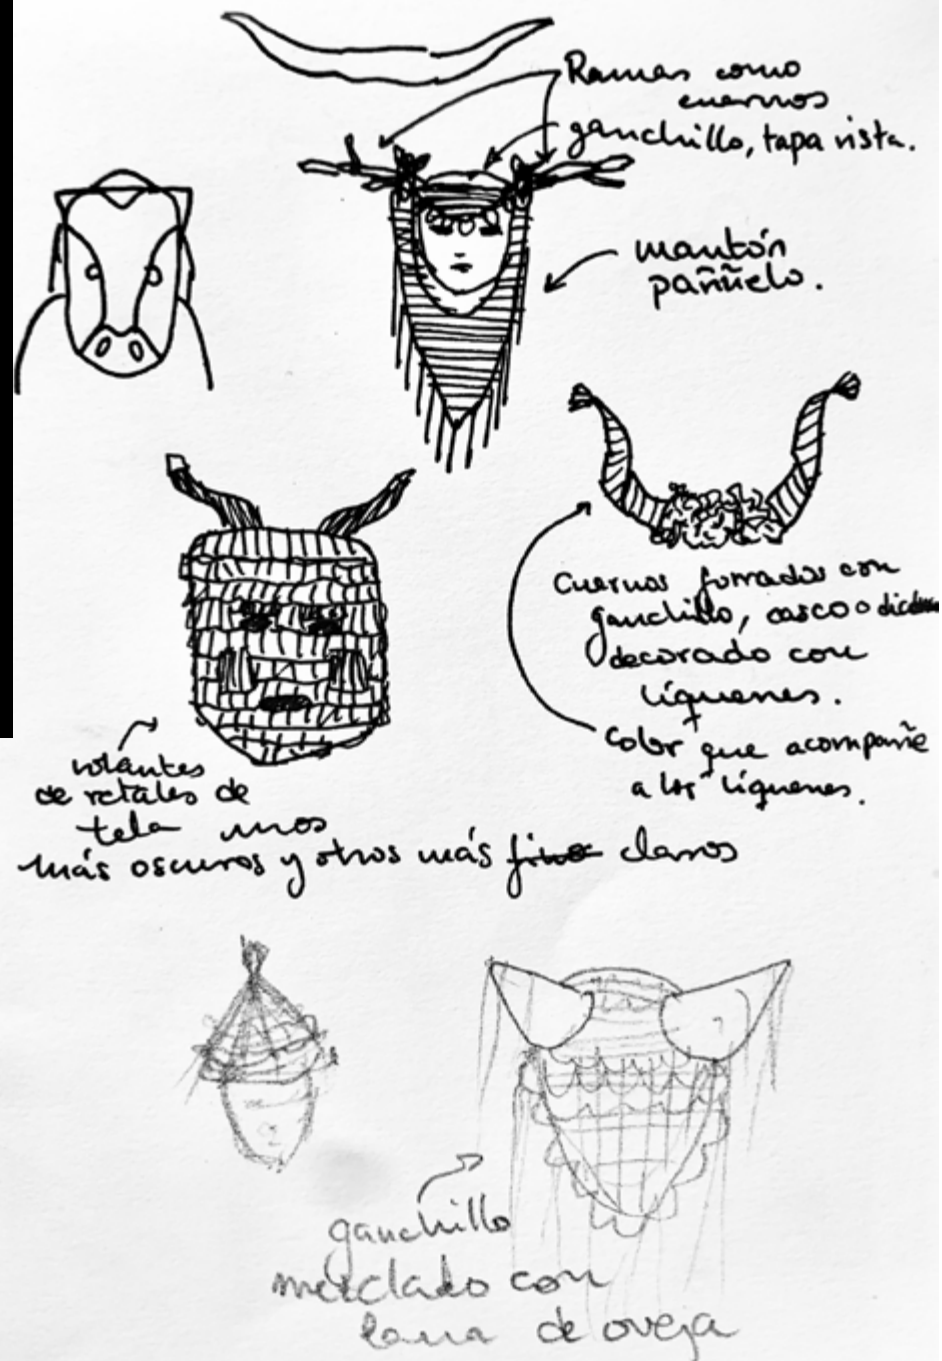 Ramas como
cuernos
ganchillo, tapa vista.
mantón
paññuelo.
Cuernos forrados con
ganchillo, casco o
decorado con
líquenes.
Color que acompañe
a los líquenes.
volantes
de retales de
tela unos
más oscuros y otros más finos claros
ganchillo
mezclado con
lana de oveja